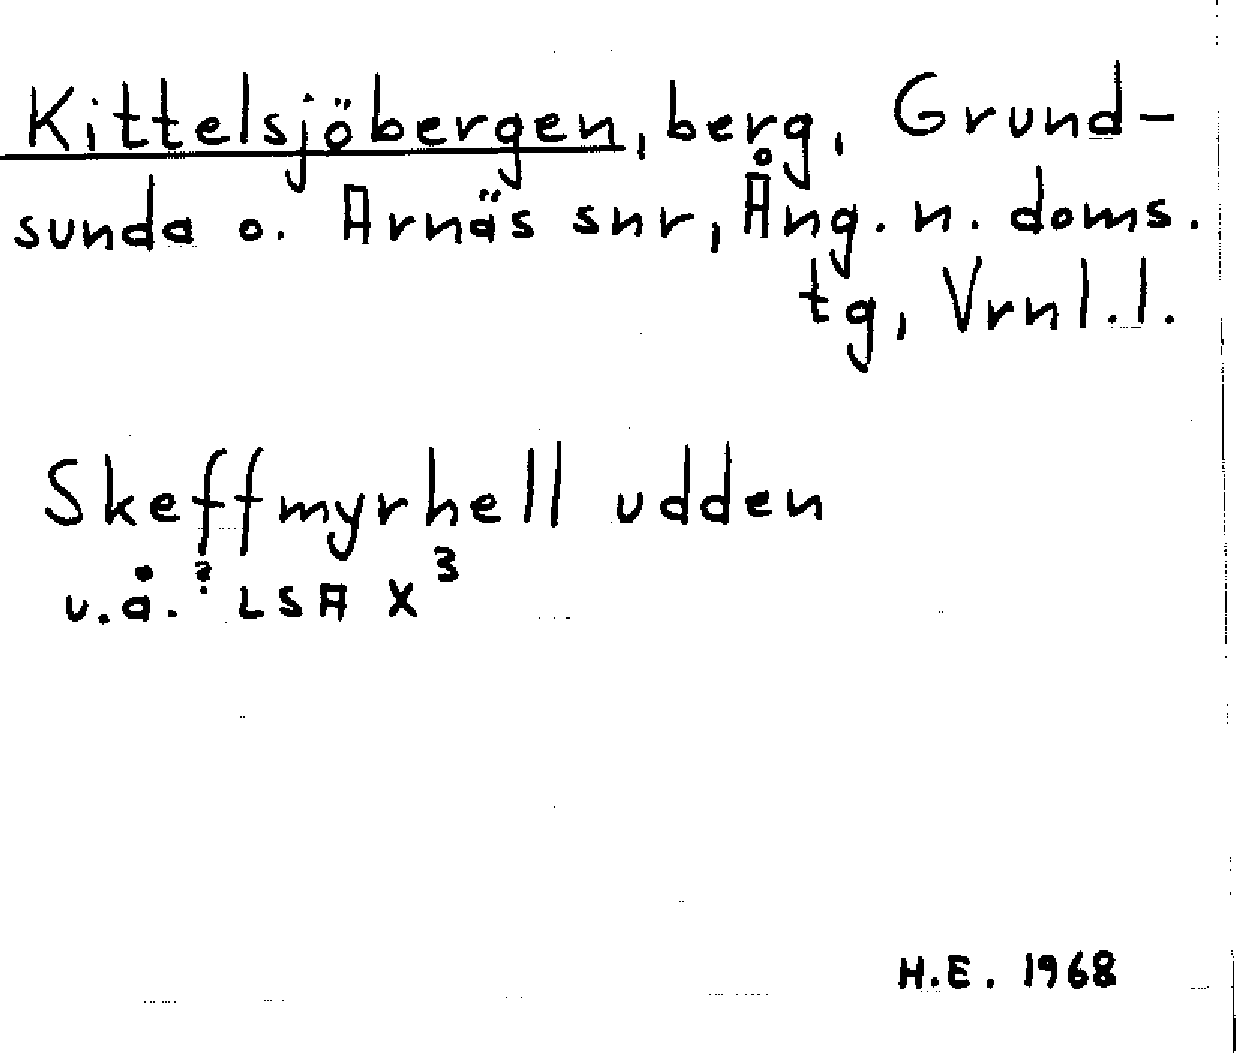 Kittelsjöbergen, berg, Grund-
sunda o. Arnäs snr, Ång. n. doms.
tg, Vrnl.l.
Skeffmyrhell udden
u.å.? LSA X3
H.E. 1968